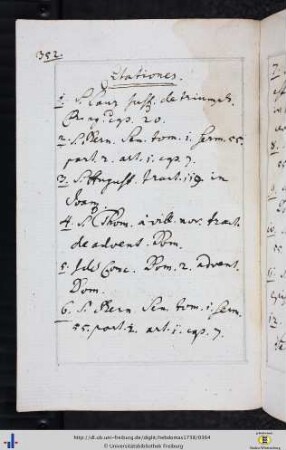 352.
Citationes.
1. S. Laur. Just. de triumph.
Xi ag. cap. 20.
2. S. Bern. Sen. tom. 1. serm. 55.
part. 2. art. 1. cap. 7.
3. S. August. tract. 119. in
Joan.
4. S. Thom. à vill. nov. tract.
de advent. Dom.
5. Idem Conc. Dom. 2. advent.
Dom.
6. S. Bern. Sen. tom. 1. serm.
55. part. 2. art. 1. cap. 7.
http://dl.ub.uni-freiburg.de/diglit/hebdomas1738/0394
© Universitätsbibliothek Freiburg
Baden-Württemberg